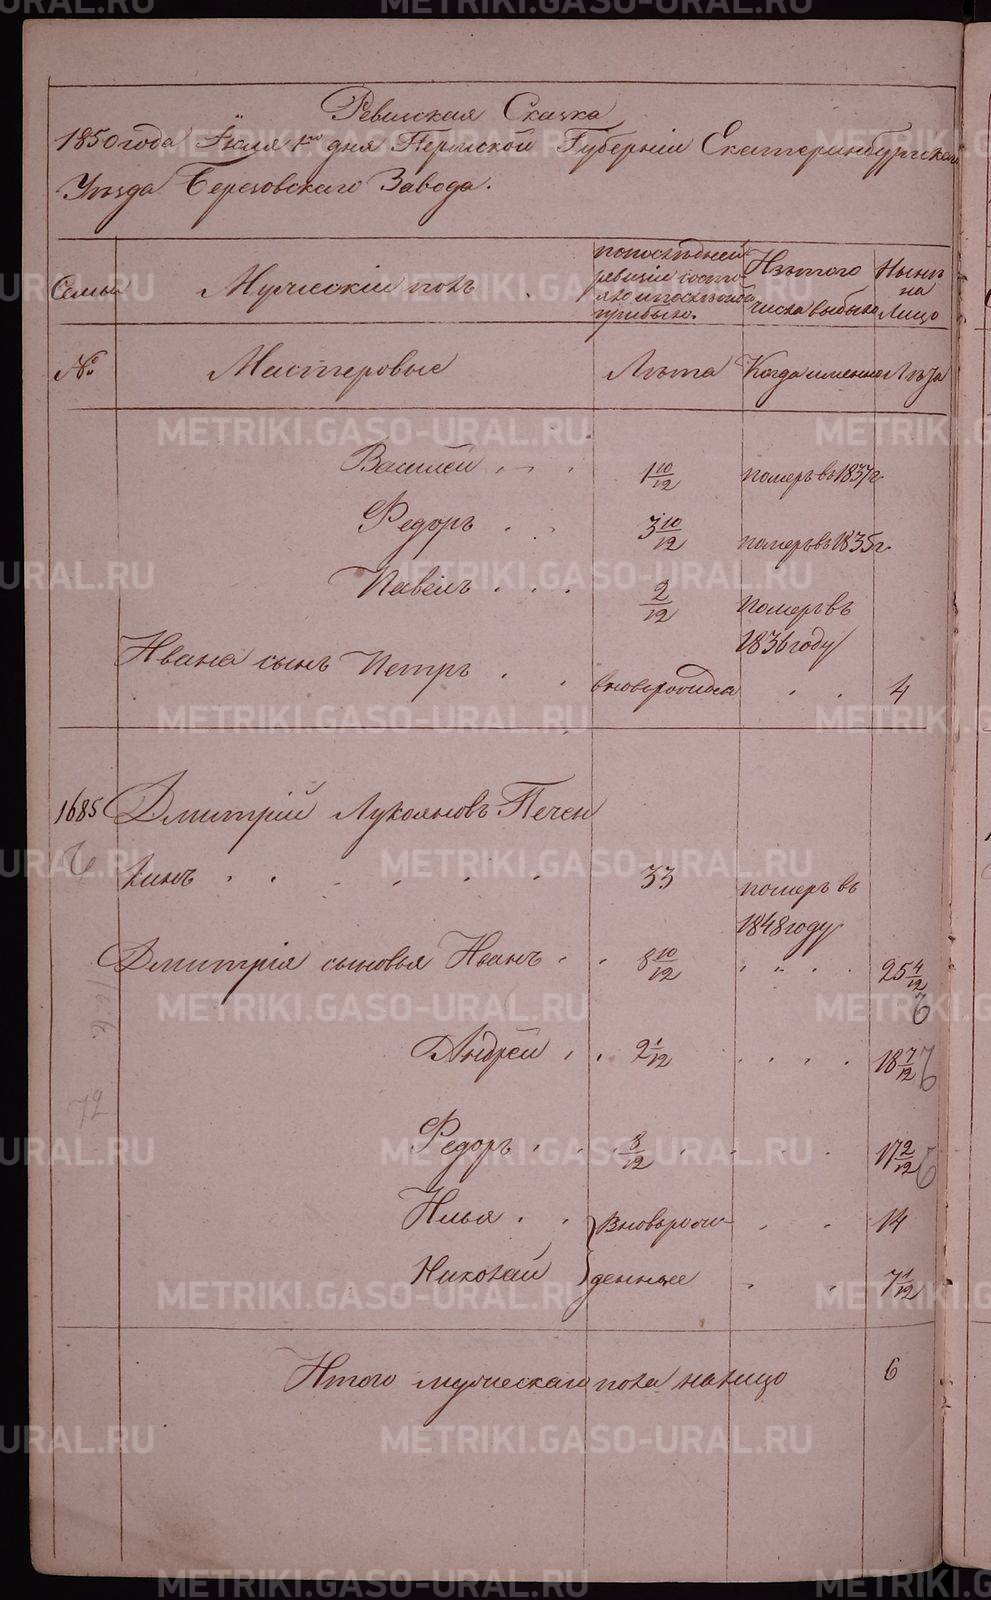 Ревизская Сказка
1850 года Июля 1го дня Пермской Губерніи Екатеринбургскаго
Уѣзда Березовскаго Завода.
Семьи
Мужескій полъ
По последней ревизіи состояло и после оной прибыло.
Изъ того числа выбыло
Нынѣ на Лицо
№
Мастеровые
Лѣта
Когда именно
Лѣта
Василей 1 10/12 померъ въ 1837 г.
Федоръ 3 10/12 померъ въ 1835 г.
Павелъ 2/12 померъ въ
1836 году
Ивана сынъ Петръ вновьродился 4
1685 Дмитрій Лукояновъ Печен
кинъ 33 померъ въ
1848 году
Дмитрія сыновья Иванъ 8 10/12 25 4/12
Андрей 2 1/12 18 7/12
Федоръ 8/12 17 2/12
Илья Вновьрож- 14
Николай денные 7 1/12
72
Итого мужескаго пола налицо 6
METRIKI.GASO-URAL.RU